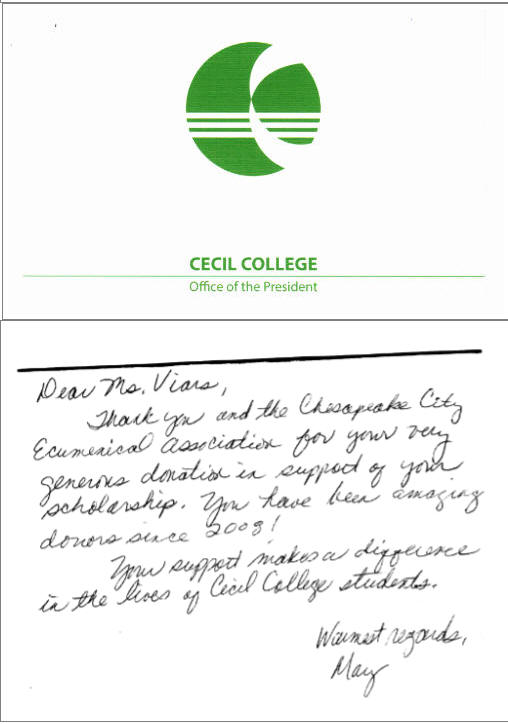 CECIL COLLEGE
Office of the President
Dear Ms. Viars,
Thank you and the Chesapeake City
Ecumenical Association for your very
generous donation in support of your
scholarship. You have been amazing
donors since !
Your support makes a difference
in the lives of Cecil College students.
Warmest regards,
Mary